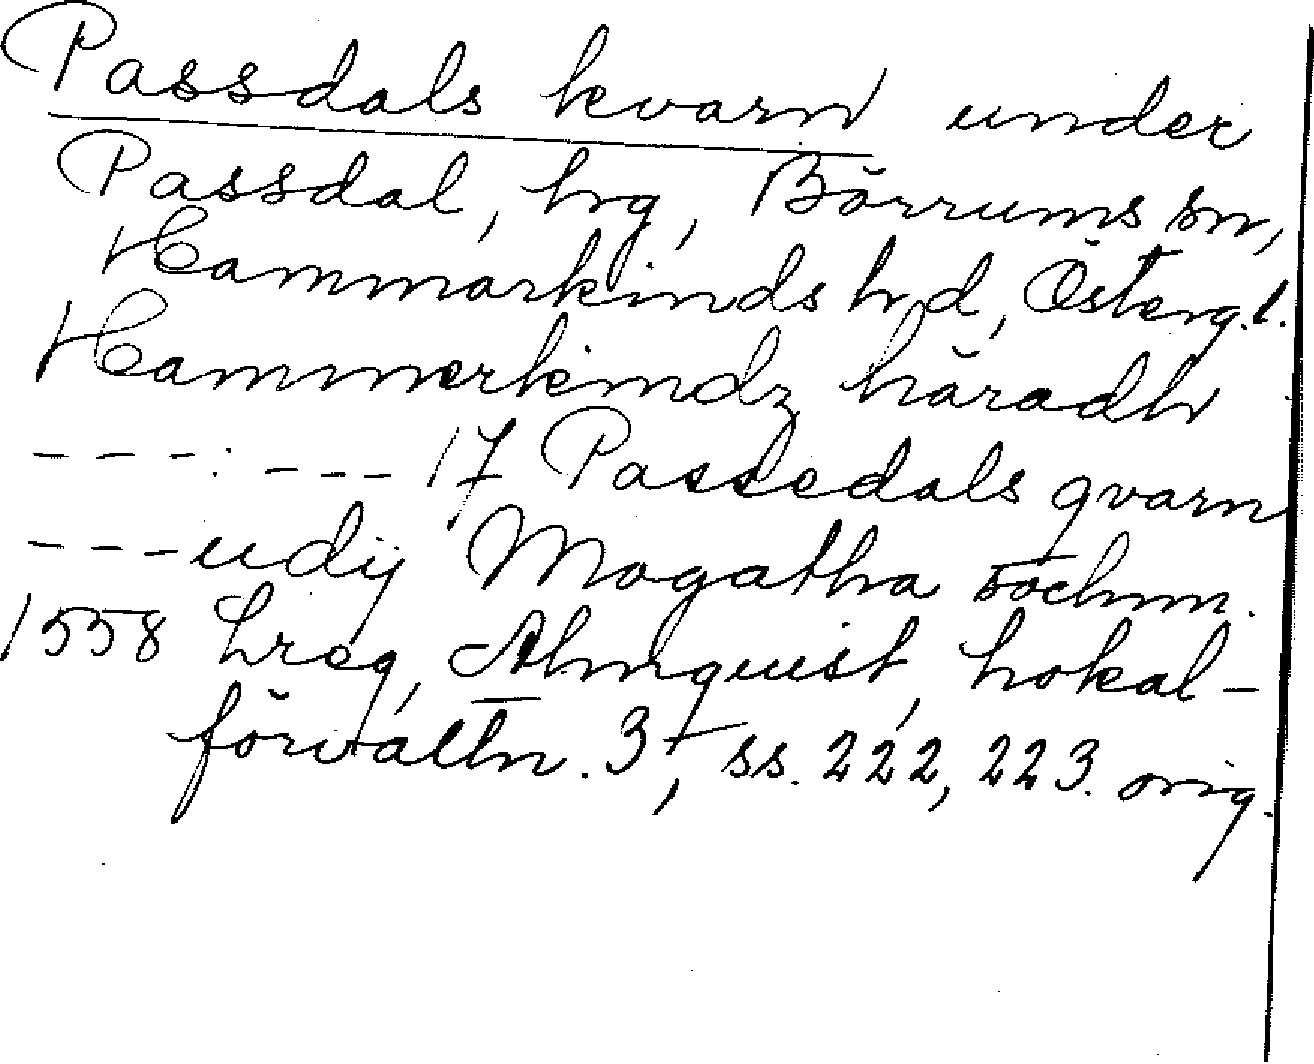 Passdals kvarn under
Passdal, hrg, Börrums sn,
Hammarkinds hrd, Österg.l.
Hammerkindz häradh
- - - : - - - 17 Passedals qvarn
- - - udij Mogatha sochnn.
1558 Lreg, Almquist, Lokal-
förvaltn. 3, ss. 222, 223. orig.